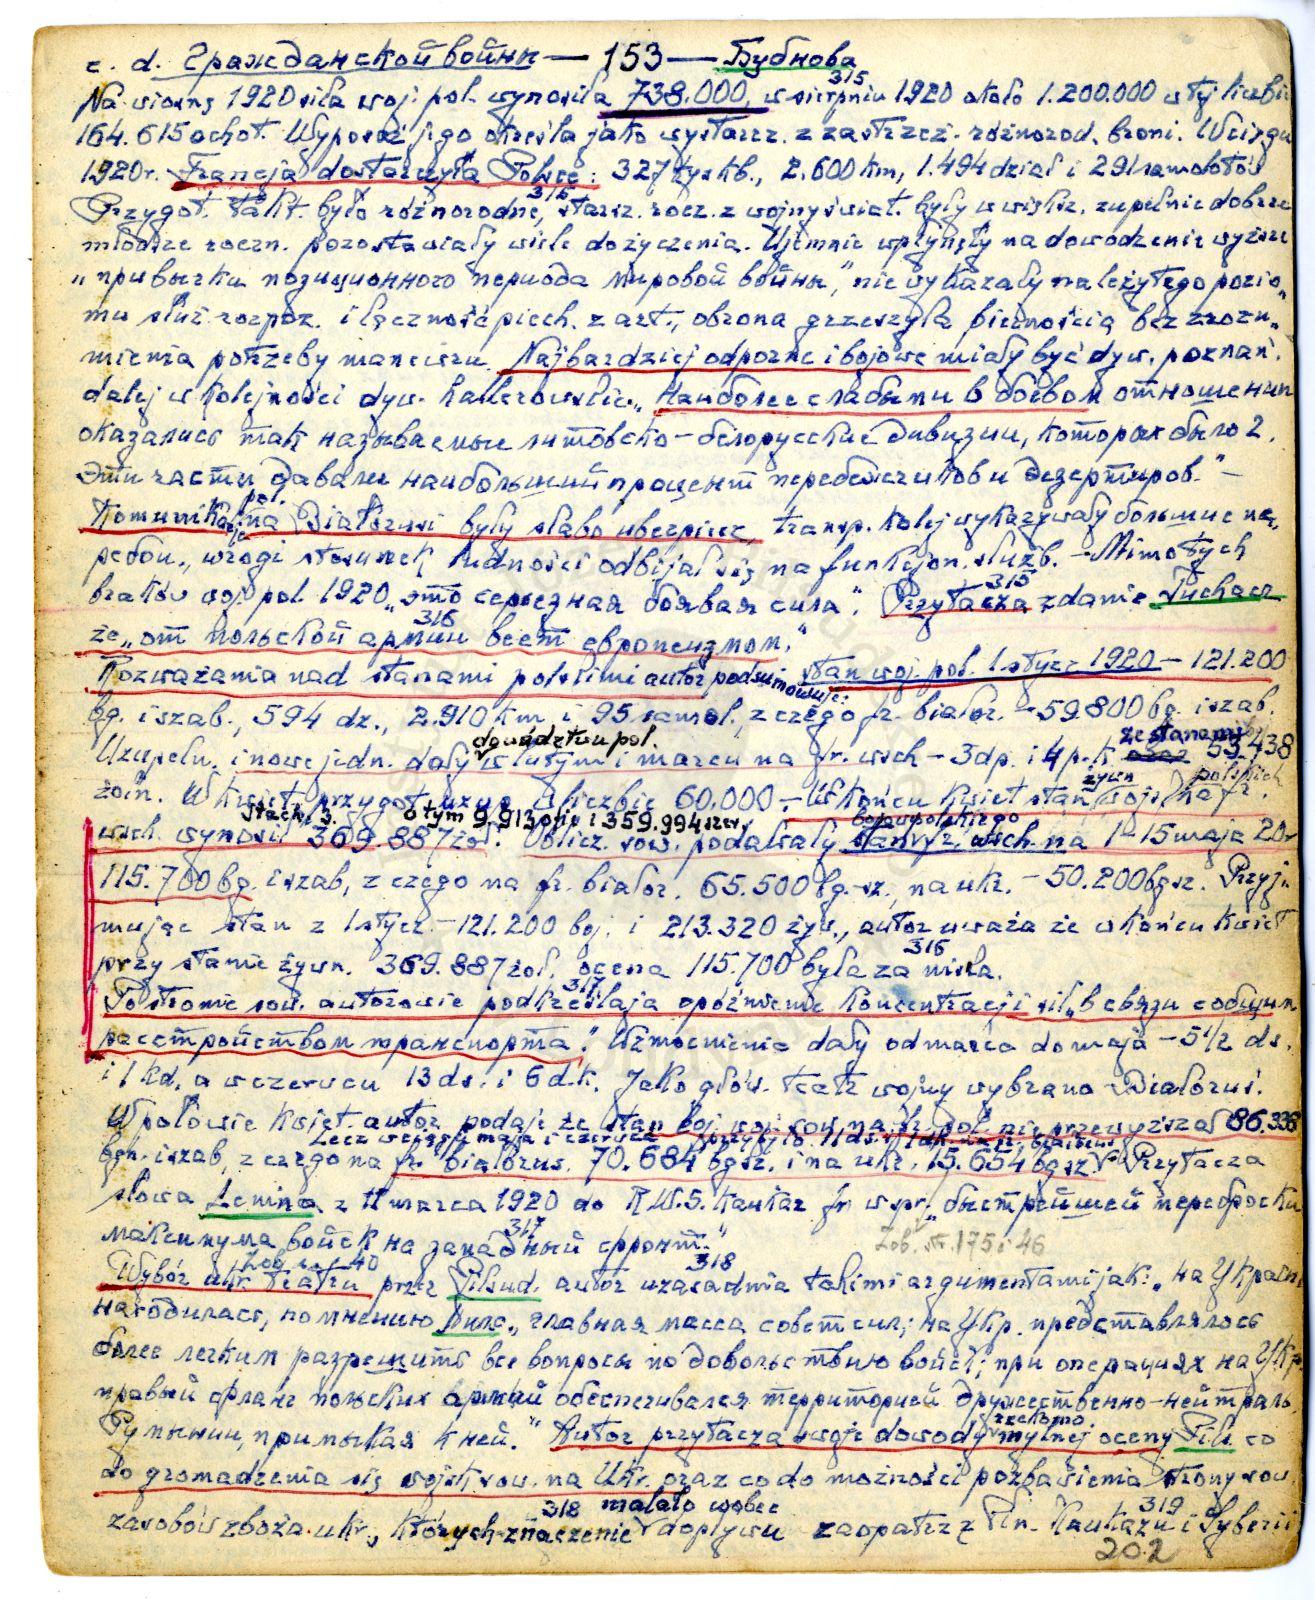 c. d. Гражданской войны — 153 — Бубнова
Na wiosnę 1920 siła woj. pol. wynosiła 738.000, 315 w sierpniu 1920 około 1.200.000 w tej liczbie
164.615 ochot. Wyposaż. jego określa jako wystarcz. z zastrzeż. różnorod. broni. W ciągu
1920 r. Francja dostarczyła Polsce: 327 tys kb., 2.600 km, 1.494 dział i 291 samolotów
Przygot. takt. było różnorodne, 315 starsz. rocz. z wojny świat. były w większ. zupełnie dobrze
młodsze roczn. pozostawiały wiele do życzenia. Ujemnie wpłynęły na dowodzenie wyższe
„привычки позиционного периода мировой войны", nie wykazały należytego pozio„
mu służ. rozpoz. i łączność piech. z art., obrona grzeszyła biernością bez zrozu„
mienia potrzeby manewru. Najbardziej odporne i bojowe miały być dyw. poznań.
dalej w kolejności dyw. hallerowskie. „Наиболее слабыми в боевом отношении
оказались так называемые литовско-белорусские дивизии, которых было 2.
Эти части давали наибольший процент перебежчиков и дезертиров." —
Komunikacje pol. na Białorusi były słabo ubezpiecz., transp. kolej. wykazywały большие пе„
ребои., wrogi stosunek ludności odbijał się na funkcjon. służb. — Mimo tych
braków woj. pol. 1920 „это серьезная боевая сила". 315 Przytacza zdanie Tuchacz
że „от польской армии 316 веет европеизмом."
Rozważania nad stanami polskimi autor podsumowuje: stan woj. pol. 1 stycz 1920 — 121.200
bg. i szab., 594 dz., 2.910 km i 95 samol., z czego fr. białor. — 59.800 bg. i szab.
Uzupełn. i nowe jedn. dały dowództwu pol. w lutym i marcu na fr. wsch — 3 dp. i 4 p.k. ze stanami 53.438
żołn. W kwiet. przygot. uzup. w liczbie 60.000 — W końcu kwiet. stan żywn wojsk polskich na fr.
wsch. wynosił Stach. 3. 369.887 żoł. o tym 9.913 ofic i 359.994 szer. Oblicz. sow. podawały stan wyż. wsch. na 1–15 maja 20 r
115.700 bg. i szab, z czego na fr. białor. 65.500 bg.-sz., na ukr. — 50.200 bgsz. Przyj„
mując stan z 1 stycz — 121.200 boj. i 213.320 żyw., autor uważa że w końcu kwiet
przy stanie żywn. 369.887 żoł. ocena 115.700 była za 316 niska.
Po stronie sow. autorowie podkreślają 317 opóźnienie koncentracji sił „в связи с общим
расстройством транспорта". Wzmocnienia dały od marca do maja — 5 1/2 ds.
i 1 kd, a w czerwcu 13 ds. i 6 d.k. Jako głów. teatr wojny wybrano Białoruś.
W połowie kwiet. autor podaje że stan boj. woj. sow. na fr. pol. nie przewyższał 86.338
Lecz w ciągu maja i czerwca przybyło 11 ds.
bgn. i szab, z czego na fr. białorus. 70.684 bgsz. i na ukr. 15.654 bgsz. Przytacza
słowa Lenina z 11 marca 1920 do R.W.S. Kaukaz fr w spr. „быстрейшей переброски
максимума войск на западный 317 фронт."
Zob. str. 175 i 46
Wybór ukr. teatru Zob. 40 przez Piłsud. autor uzasadnia 318 takimi argumentami jak: „на Украине
находилась, по мнению Пилс., главная масса совет сил; на Укр. представлялось
более легким разрешить все вопросы по довольствию войск; при операциях на Укр
правый фланг польских армий обеспечивался территорией дружественно-нейтраль
Румынии, примыкая к ней." Autor przytacza swoje dowody rzekomo mylnej oceny Pils. co
do gromadzenia się wojsk sow. na Ukr. oraz co do możności pozbawienia strony sow.
zasobów zboża ukr., 318 których znaczenie malało wobec dopływu zaopatrz z Płn. Kaukazu 319 i Syberii
202